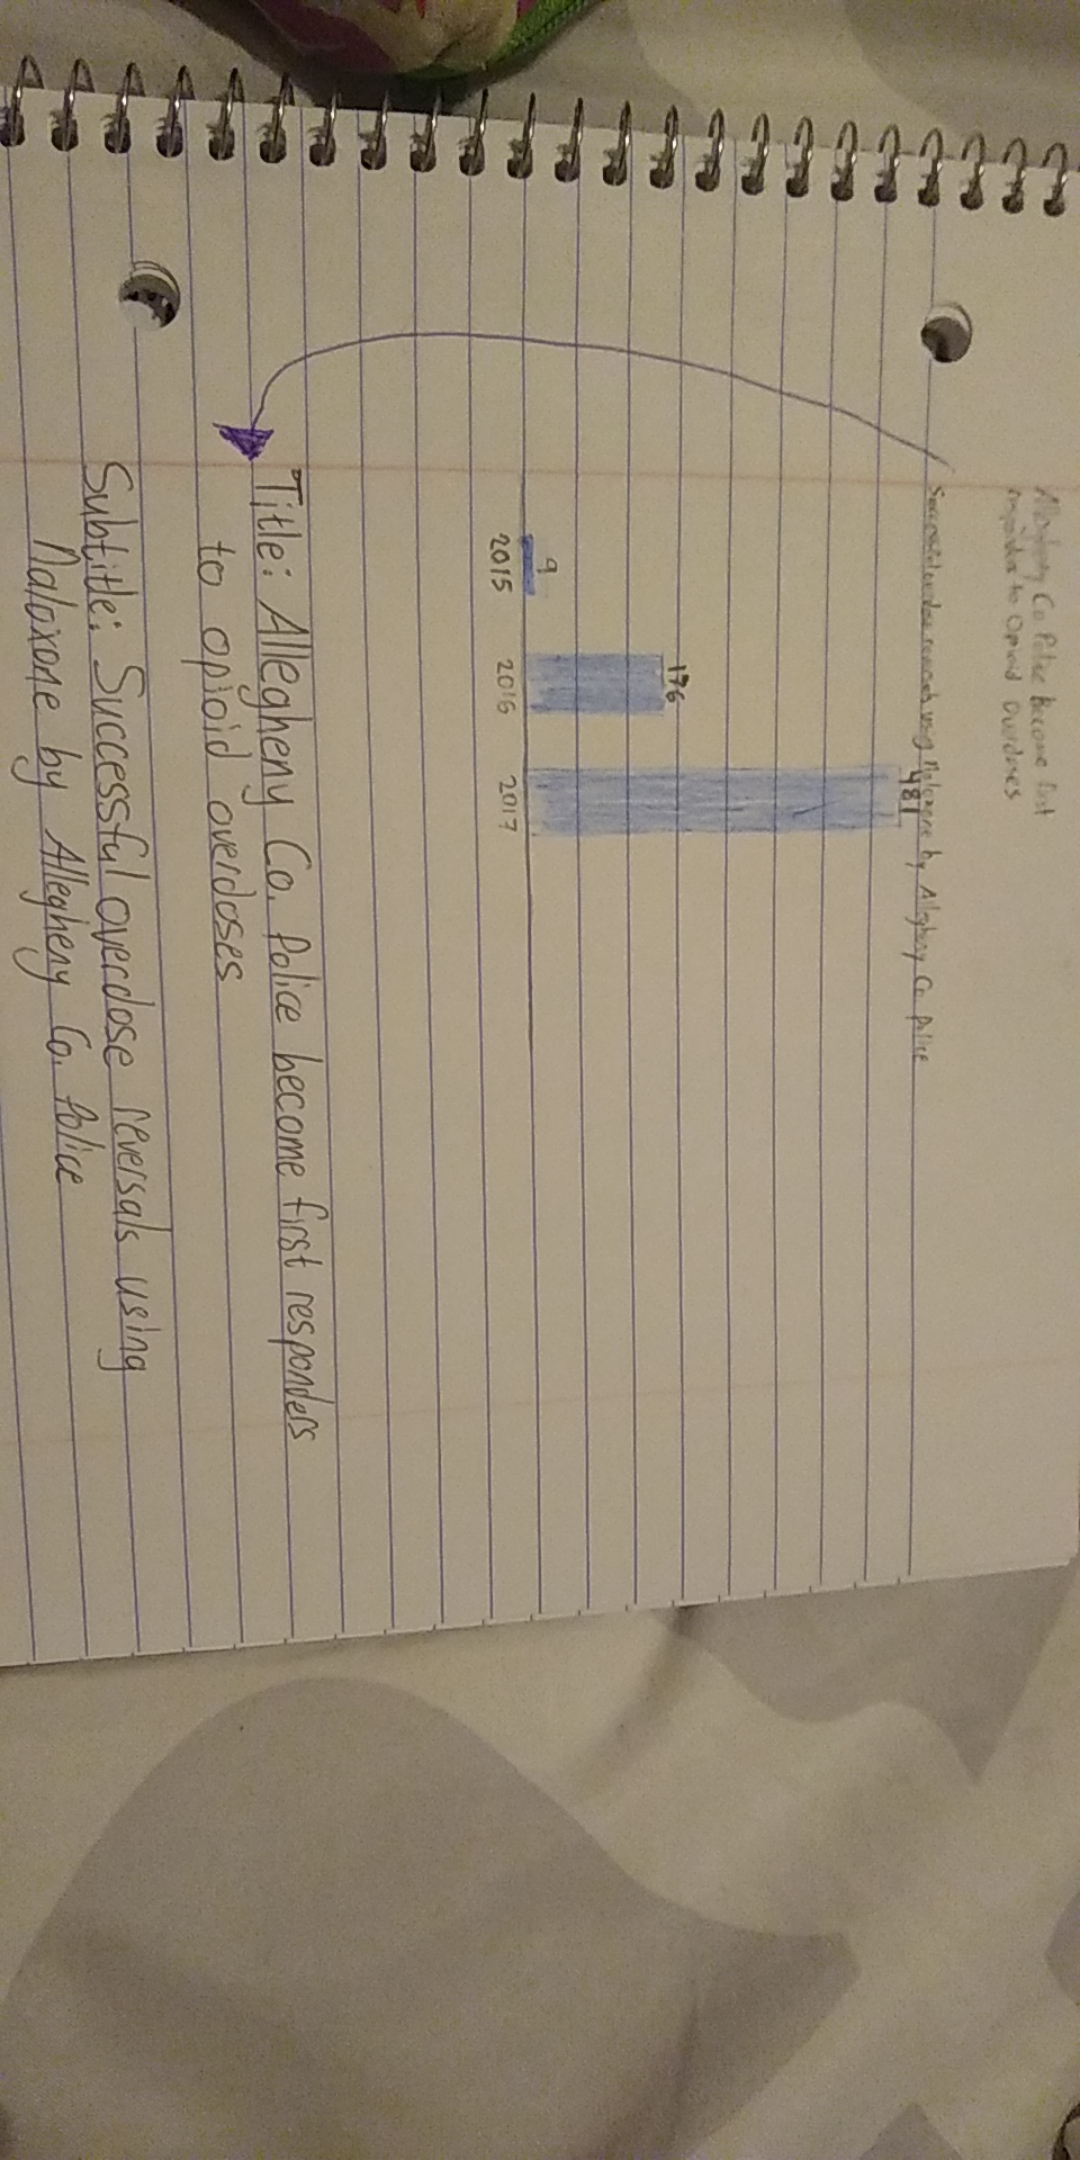 Allegheny Co Police Become first
responders to Opioid Overdoses
Successful overdose reversals using Naloxone by Allegheny Co Police
481
176
9
2015 2016 2017
Title: Allegheny Co. Police become first responders
to opioid overdoses
Subtitle: Successful overdose reversals using
Naloxone by Allegheny Co. Police